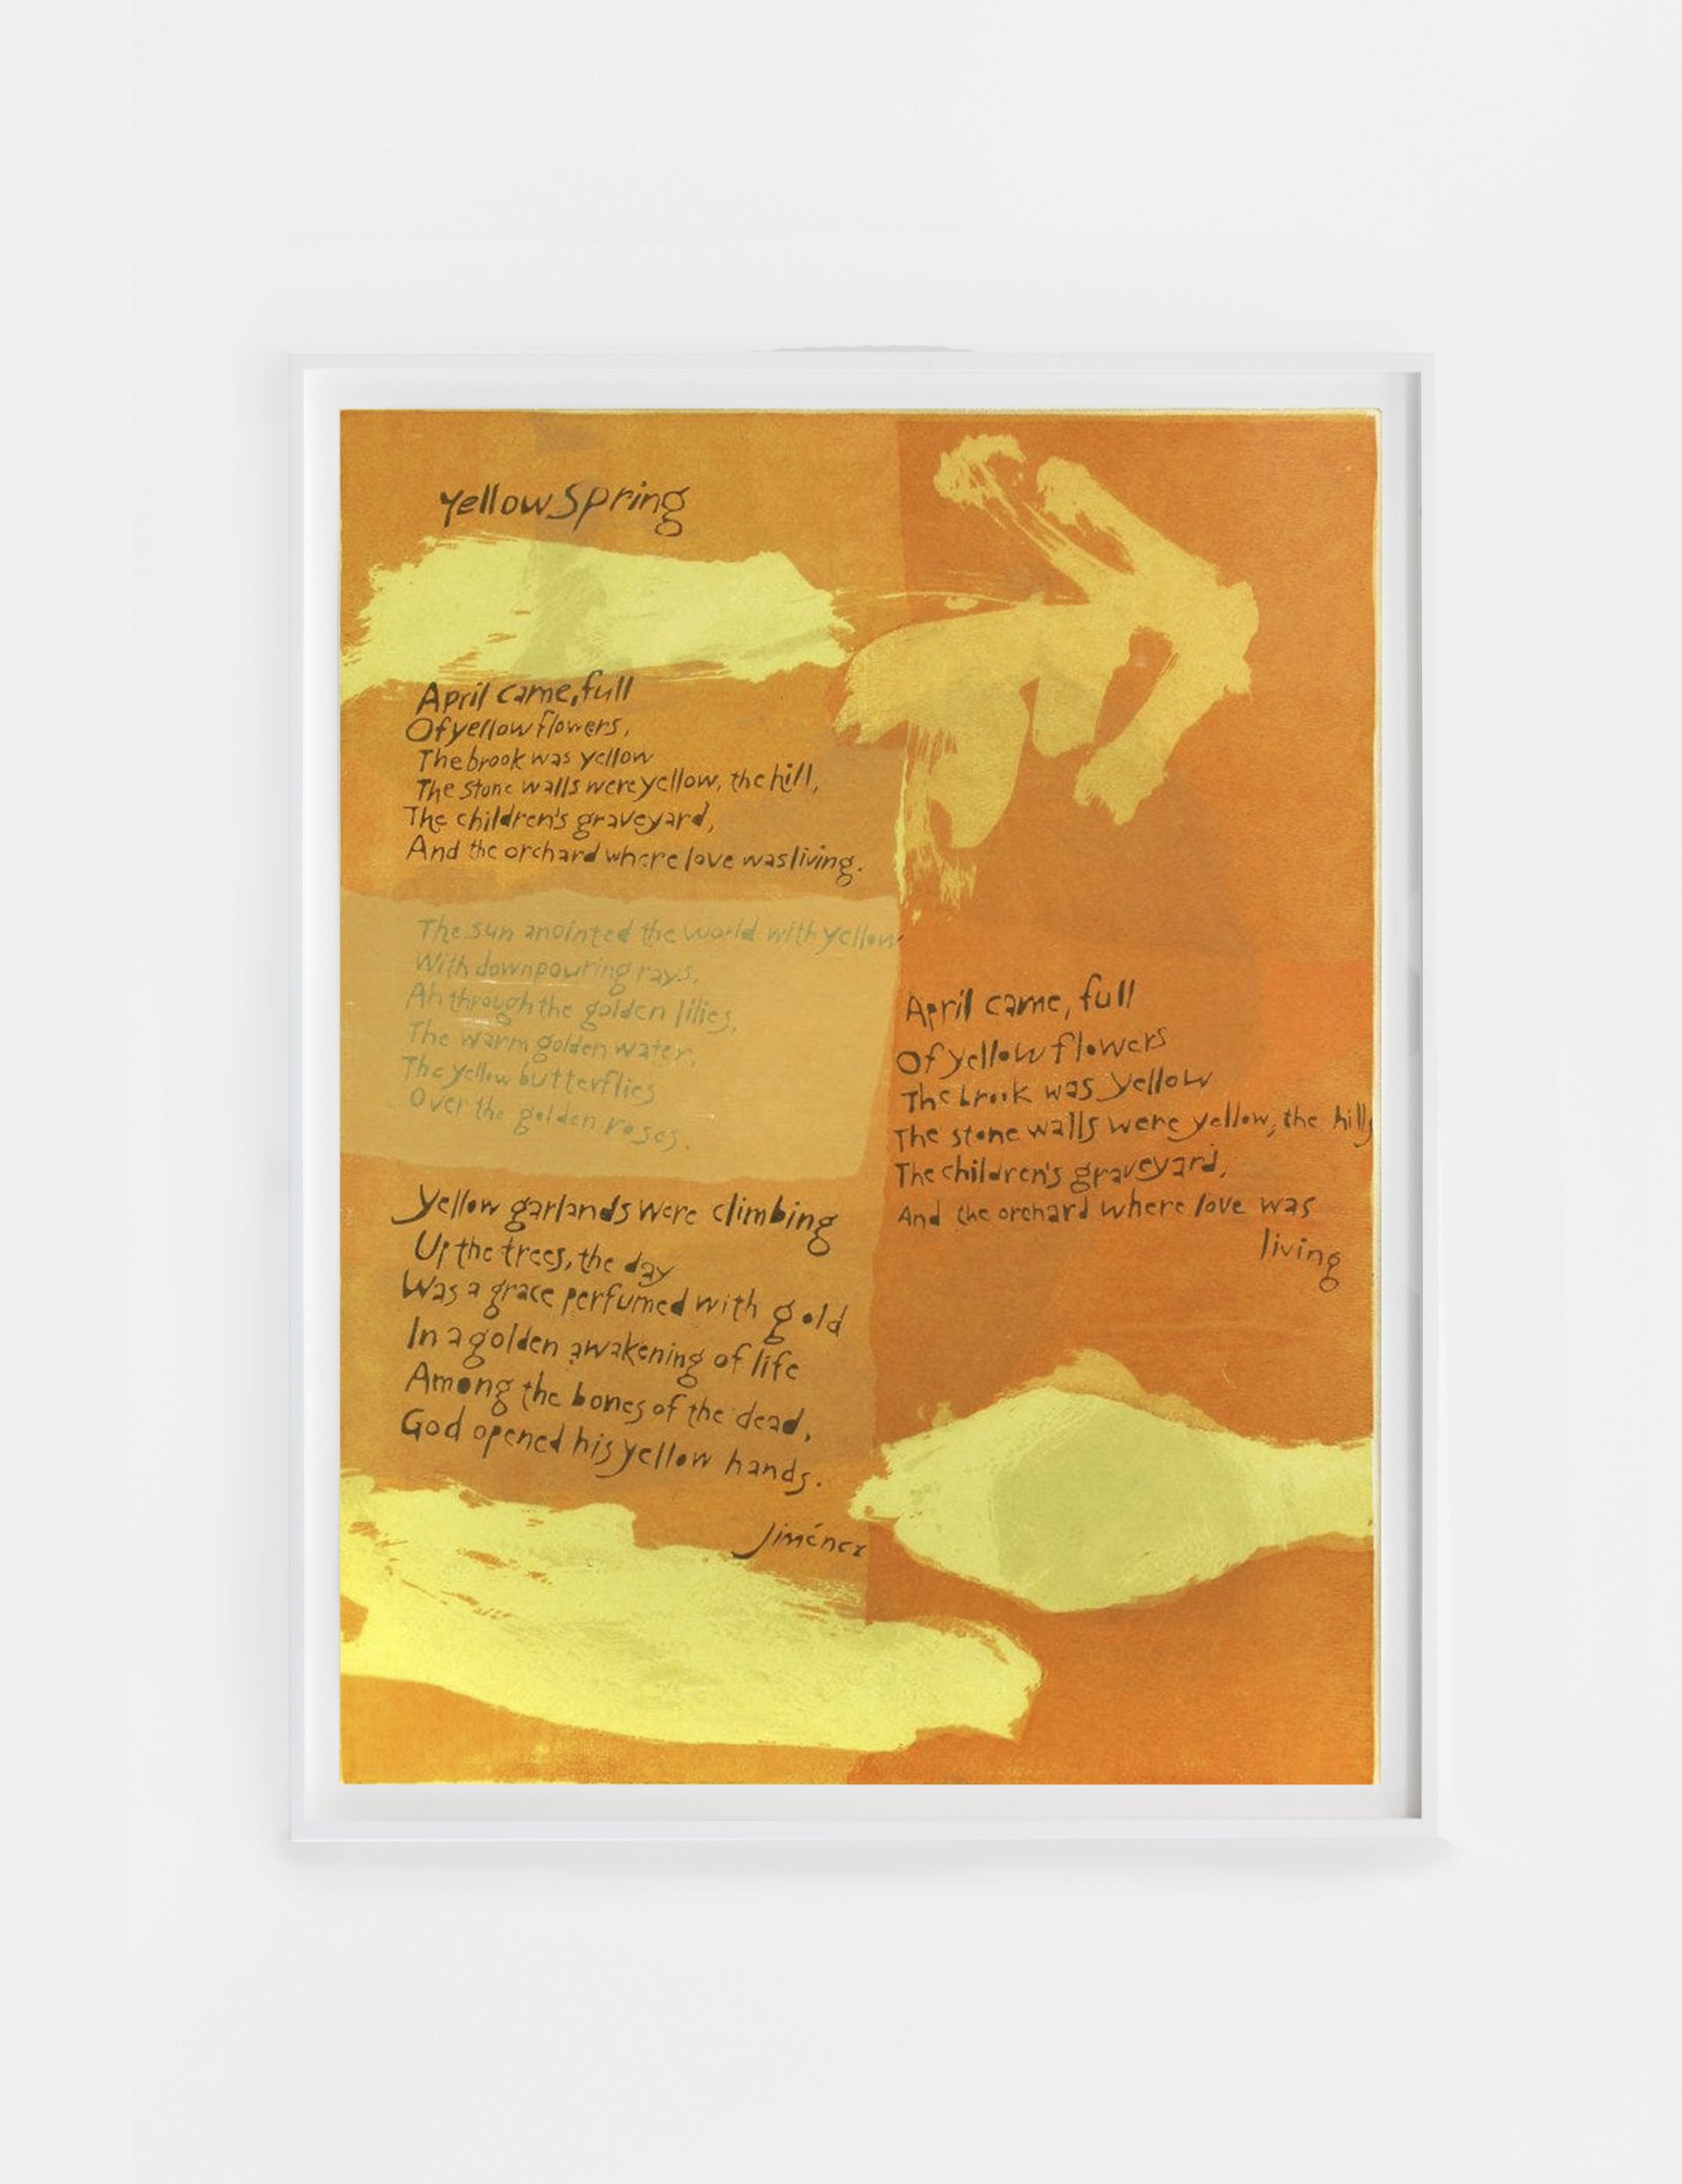 Yellow Spring
April came, full
Of yellow flowers,
The brook was yellow
The stone walls were yellow, the hill,
The children's graveyard,
And the orchard where love was living.
The sun anointed the world with yellow
With downpouring rays.
Ah through the golden lilies,
The warm golden water,
The yellow butterflies
Over the golden roses.
Yellow garlands were climbing
Up the trees, the day
Was a grace perfumed with gold
In a golden awakening of life
Among the bones of the dead,
God opened his yellow hands.
Jiménez
April came, full
Of yellow flowers
The brook was yellow
The stone walls were yellow, the hills
The children's graveyard,
And the orchard where love was
living